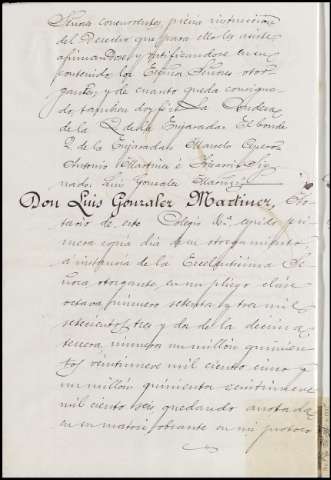 Señores concurrentes, previa instruccion
del Derecho que para ello les asiste
afirmandose y ratificandose en su
contenido los Excmos Señores otor-
gantes, y de cuanto queda consigna-
do, tambien doy fé. La Condesa
de la Q. de la Enjarada. El Conde
Q. de la Enjarada. Marcelo
Antonio Martinez é
nado. Luis Gonzalez Martinez
Don Luis Gonzalez Martinez, No-
tario de este Colegio expido pri-
mera copia dia de su otorgamiento
á instancia de la Excelentisima Se-
ñora otorgante, en un pliego clase
octava número setenta y tres mil
setecientos tres y dos de la decima
tercera número un millón quinien-
tos veintinueve mil ciento cinco y
un millón quinientos veintinueve
mil ciento seis quedando anotada
en su matriz obrante en mi protoco-